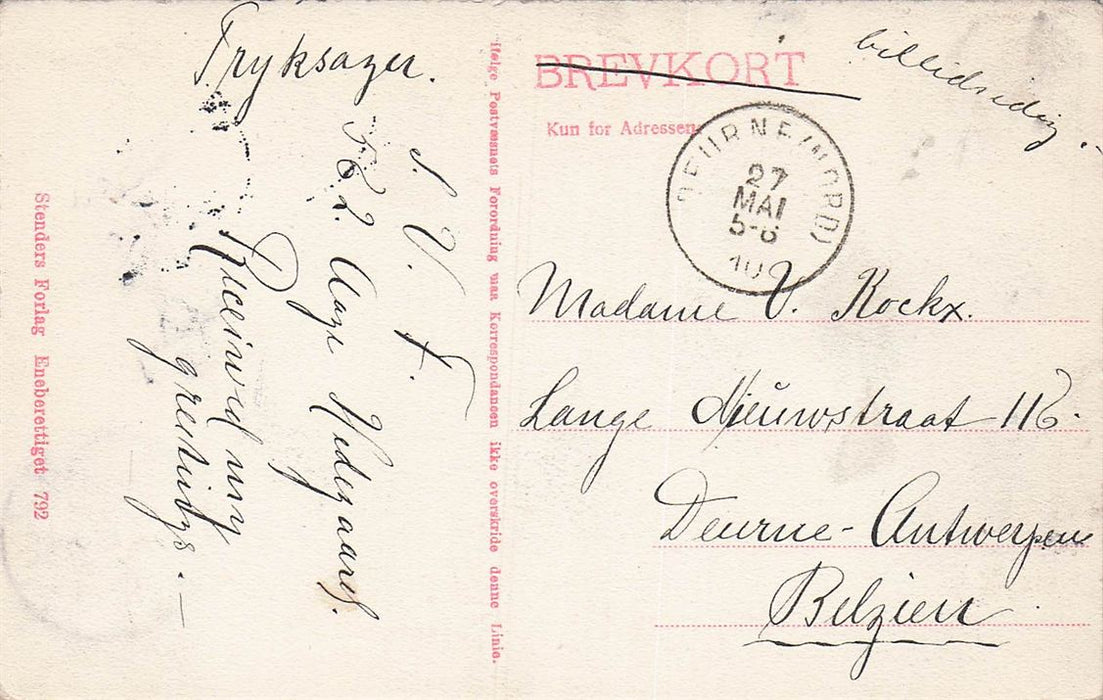 Tryksager.
S. V. F.
T. 62. Aage Hedegaard.
Receives my
greetings. —
Stenders Forlag Eneberettiget 792
Ifølge Postvæsnets Forordning maa Korrespondancen ikke overskride denne Linie.
BREVKORT
Kun for Adressen
DEURNE (NORD)
27
MAI
5-6
10
Madame V. Kockx.
Lange Nieuwstraat 116.
Deurne-Antwerpen
Belgien